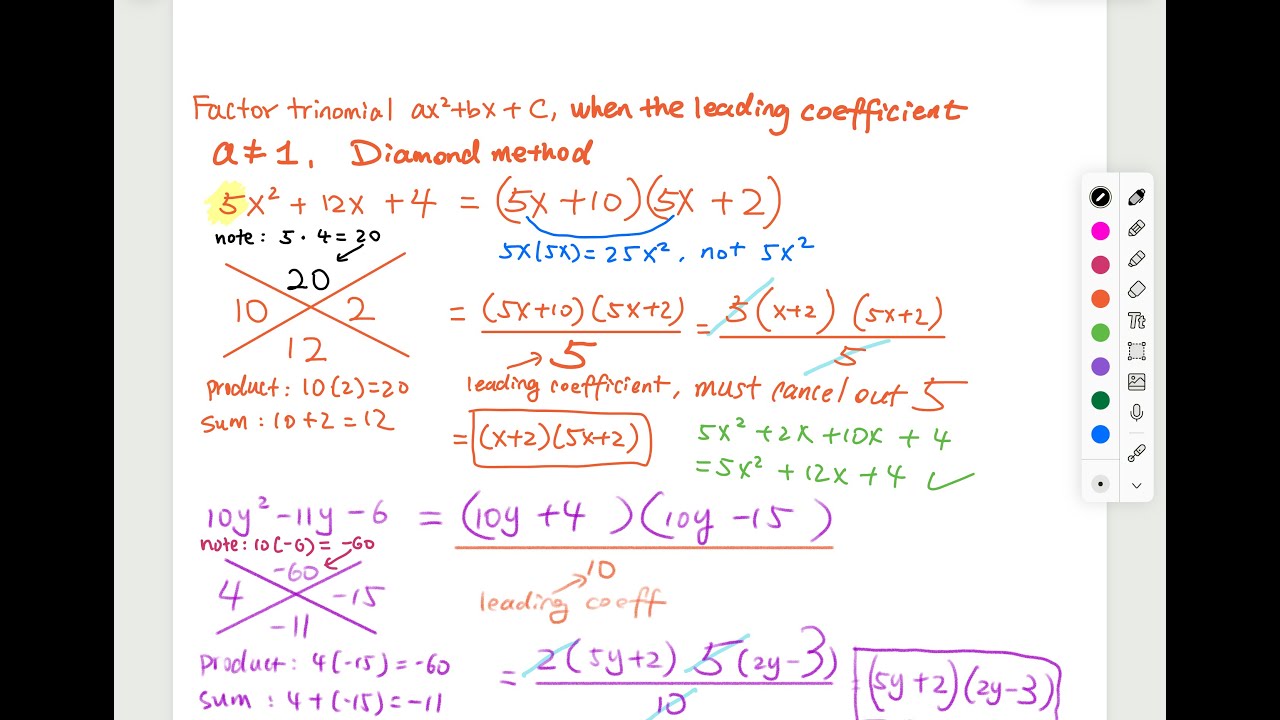 Factor trinomial ax²+bx+C, when the leading coefficient
a≠1. Diamond method
5x² + 12x + 4 = (5x+10)(5x+2)
note: 5·4=20
5x(5x)=25x², not 5x²
20
10 2
12
= (5x+10)(5x+2) / 5 = 5(x+2)(5x+2) / 5
product: 10(2)=20
leading coefficient, must cancel out 5
sum: 10+2=12
= (x+2)(5x+2)
5x²+2x+10x+4
=5x²+12x+4 ✓
10y²-11y-6 = (10y+4)(10y-15)
note: 10(-6)= -60
10
leading coeff
-60
4 -15
-11
product: 4(-15)=-60
sum: 4+(-15)=-11
= 2(5y+2) 5(2y-3) / 10
(5y+2)(2y-3)
Tt